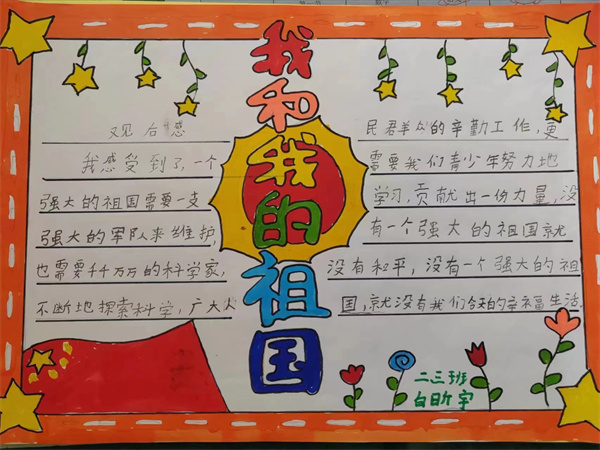 我和我的祖国
观后感
我感受到了,一个
强大的祖国需要一支
强大的军队来维护,
也需要千千万万的科学家,
不断地探索科学,广大人
民群众的辛勤工作,更
需要我们青少年努力地
学习,贡献出一份力量,没
有一个强大的祖国就
没有和平,没有一个强大的祖
国,就没有我们今天的幸福生活。
二三班